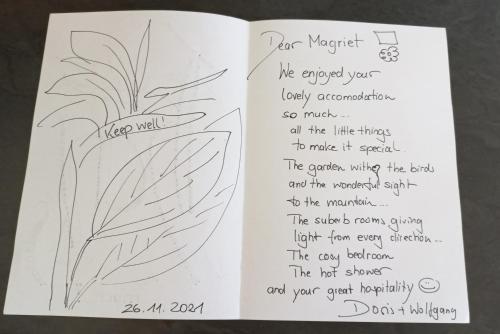 Keep well!
26.11.2021
Dear Magriet
We enjoyed your
lovely accomodation
so much...
all the little things
to make it special.
The garden with the birds
and the wonderful sight
to the mountain...
The suberb rooms giving
light from every direction...
The cosy bedroom
The hot shower
and your great hospitality ☺
Doris + Wolfgang